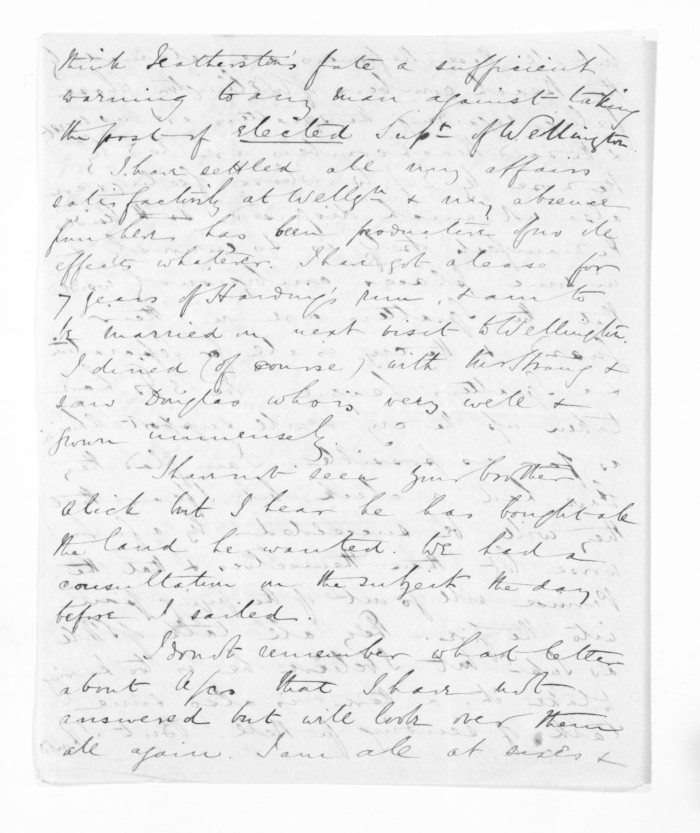 think Featherston's fate a sufficient
warning to any man against taking
the post of elected Supt. of Wellington.
I have settled all my affairs
satisfactorily at Wellgtn & my absence
has been productive of no ill
effects whatever. I have got a lease for
7 years of Harding's run, & am to
be married on next visit to Wellington.
I dined (of course) with Mrs Strang &
saw Douglas who is very well &
grown immensely.
I have not seen your brother
Alick but I hear he has bought all
the land he wanted. We had a
consultation on the subject the day
before I sailed.
I do not remember what letter
about that I have not
answered but will look over them
all again. I am all at sixes &